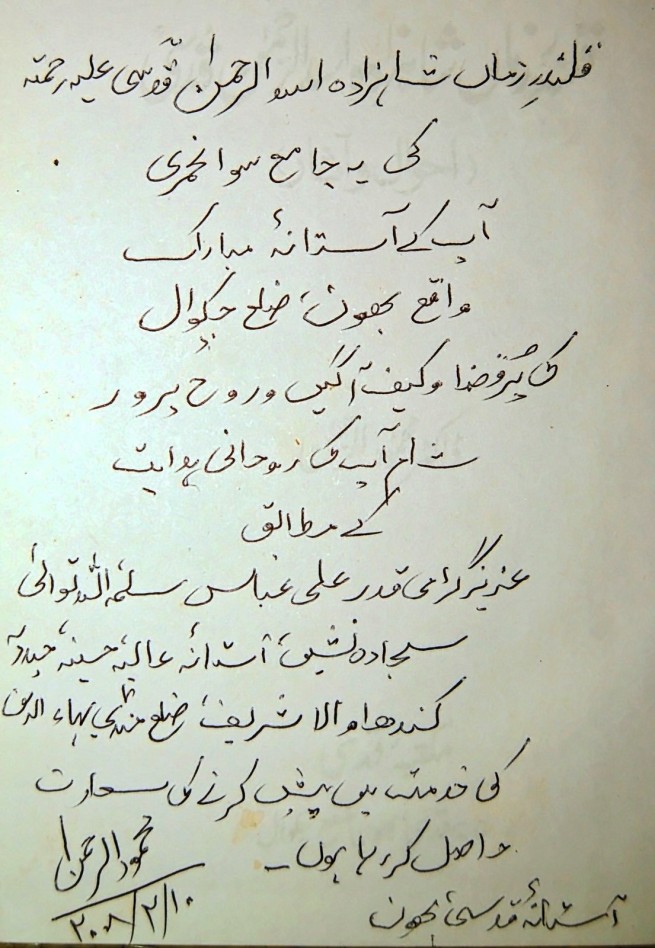 قلندرِ زماں شاہزادہ اسد الرحمٰن قدسی علیہ رحمتہ
کی یہ جامع سوانحمری
آپ کے آستانۂ مبارک
واقع بھون، ضلع چکوال
کی پُرفضا و کیف آگیں و روح پرور
شام آپ کی روحانی ہدایت
کے مطابق
عزیز گرامی قدر علی عباس سلمہٗ اللہ تعالیٰ
سجادہ نشین، آستانۂ عالیہ حسینیہ، حیدریہ
کندھانوالا شریف، ضلع منڈی بہاء الدین
کی خدمت میں پیش کرنے کی سعادت
حاصل کر رہا ہوں۔
محمود الرحمٰن
۱۰/۲/۲۰۰۸
آستانۂ قدسی، بھون